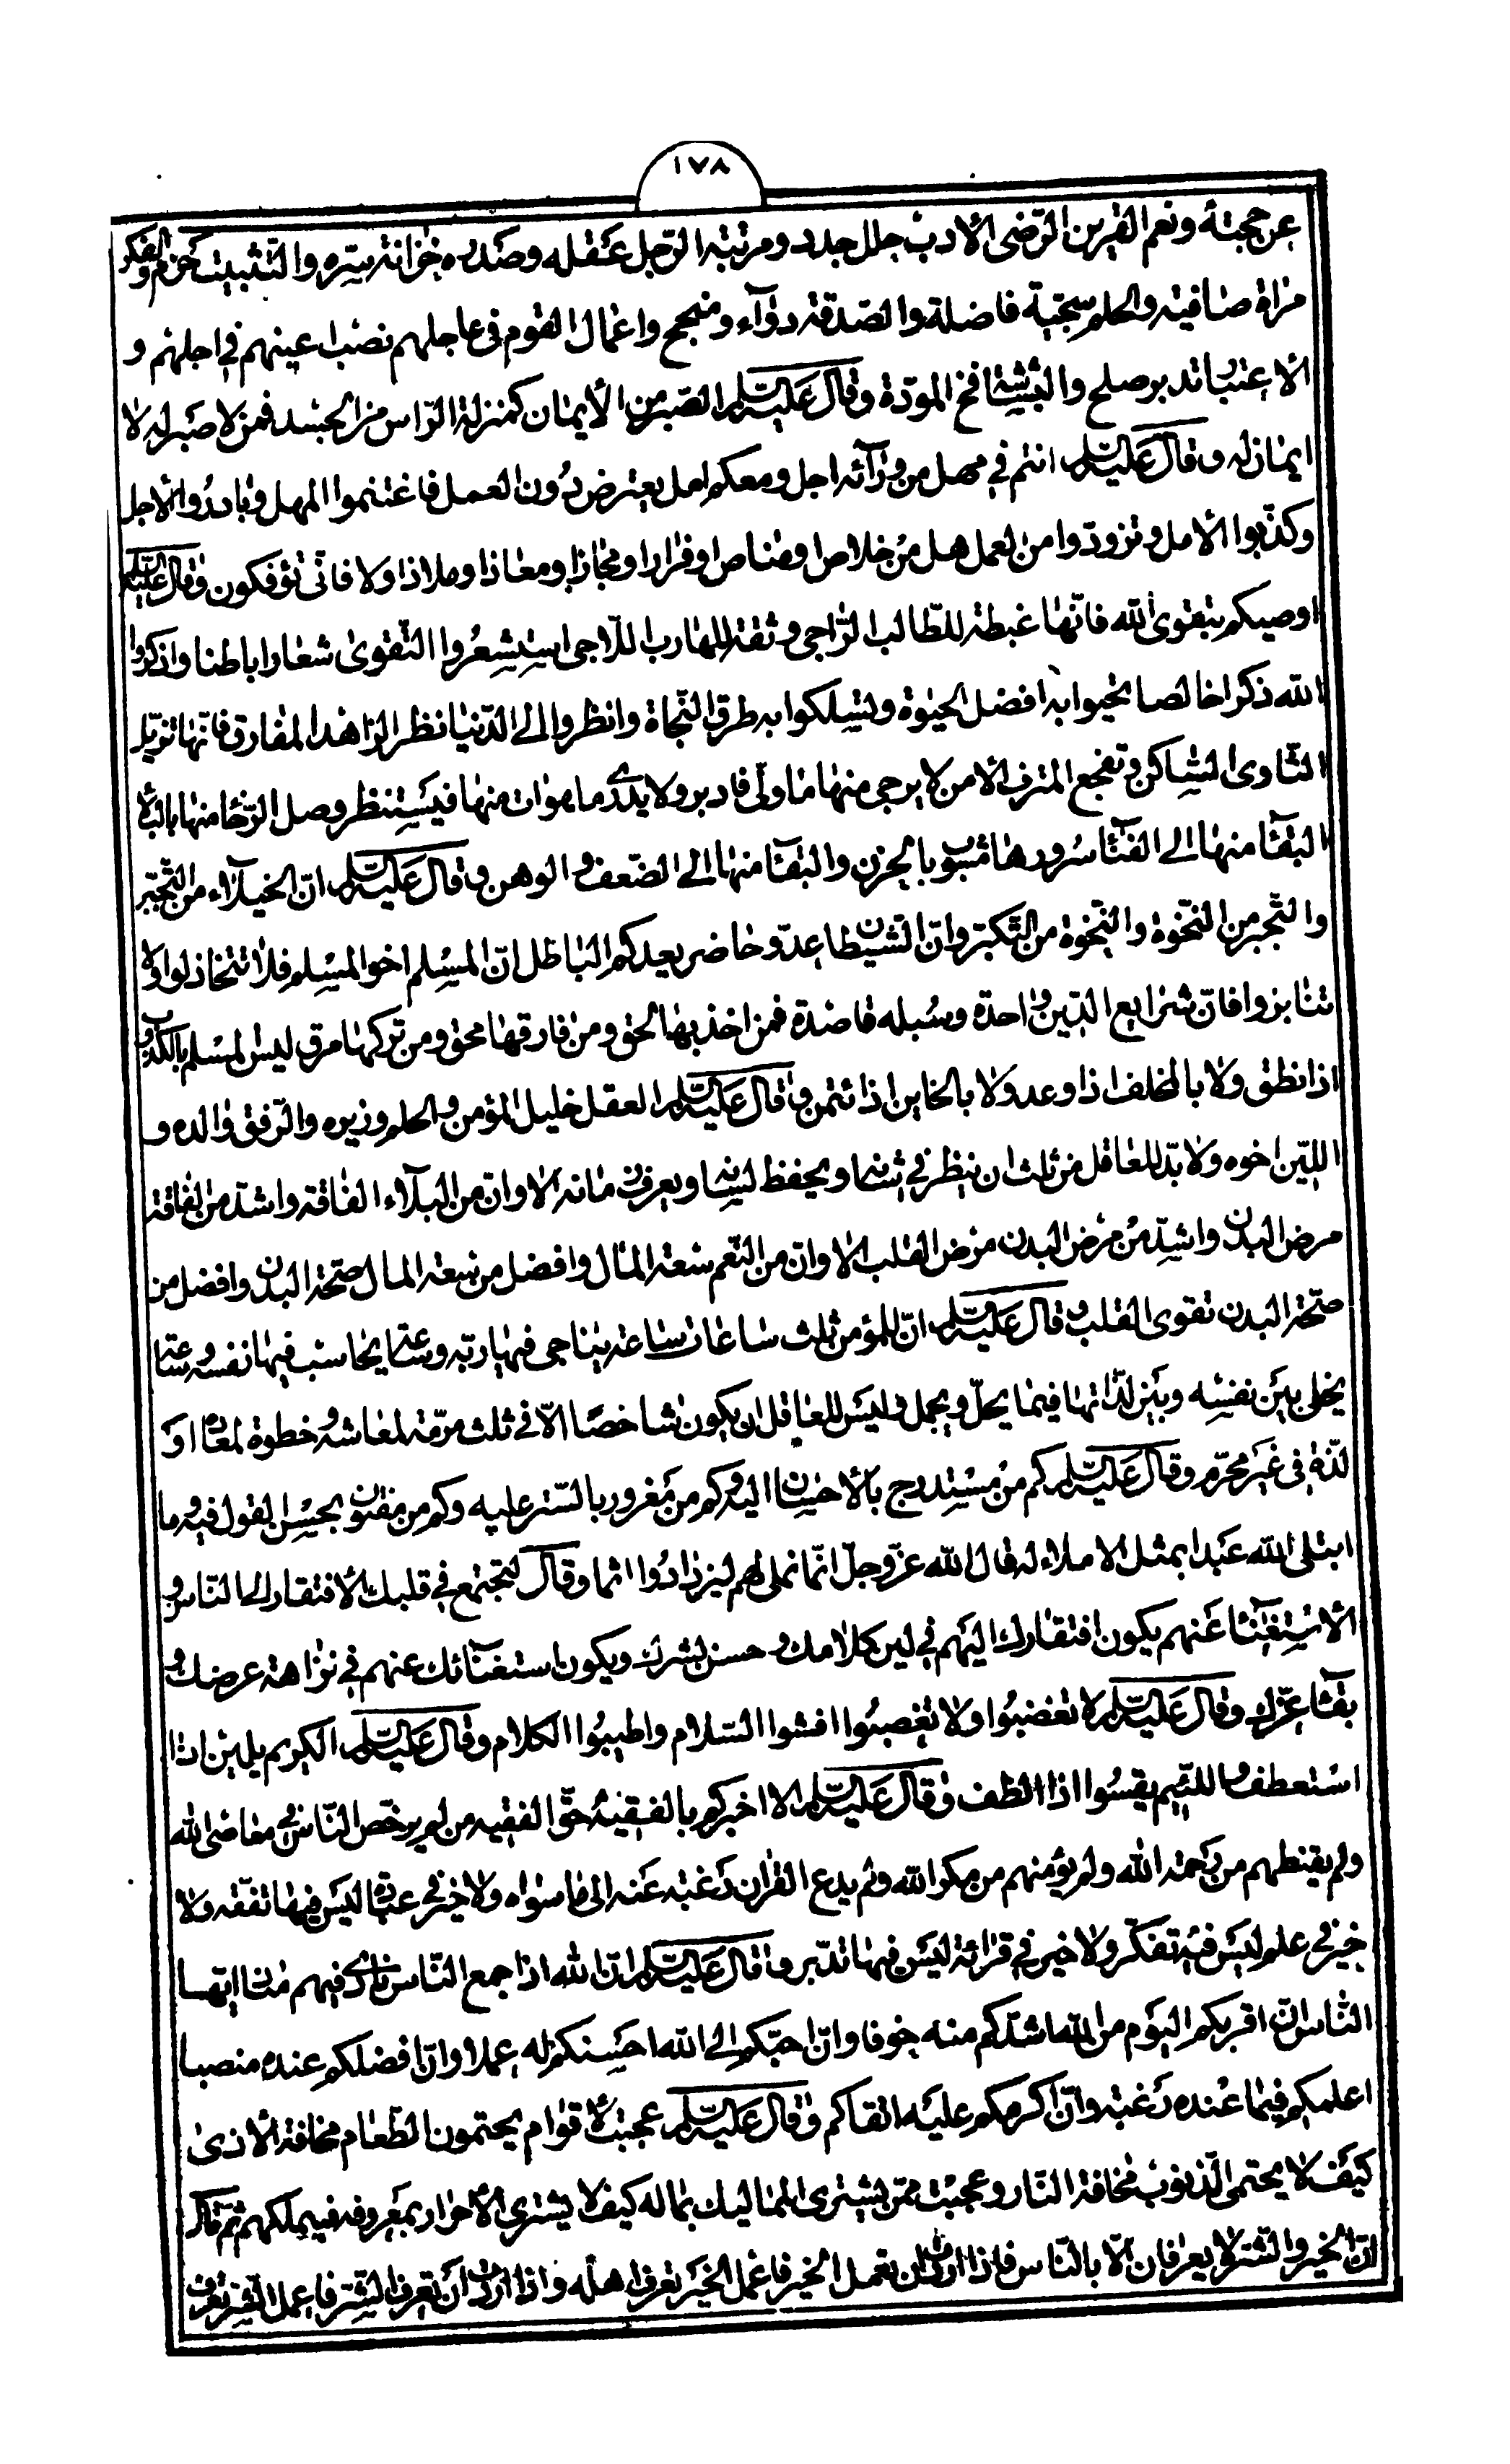 ١٧٨
عن حجبته ونعم القرين الرّضى الادب حلل جدد ومرتبة الرّجل عقله وصدره خزانة سرّه والتّثبيت حزم والفكر
مراة صافية والحلم سجيّة فاضلة والصّدقة دوآء ومنجح واعمال القوم فى عاجلهم نصب اعينهم فى اجلهم و
الاعتبار تدبر صلح والبشاشة فخ المودّة وقال عليه السّلم الصّبر من الايمان كمنزلة الرّاس من الجسد فمن لا صبر له لا
ايمان له وقال عليه السّلم انتم فى مهل من ورآئه اجل ومعكم امل يعترض دون العمل فاغتنموا المهل وبادروا الاجل
وكذّبوا الامل وتزودّوا من العمل هل من خلاص او مناص او فرار او مجاز او معاذ او ملاذ او لا فانّى تؤفكون وقال عليه السّلم
اوصيكم بتقوى الله فانّها غبطة للطّالب الرّاجى وثقة للهارب للّاجى استشعروا التّقوى شعارا باطنا واذكروا
الله ذكرا خالصا تحيوا به افضل الحيوة وتسلكوا به طرق النّجاة وانظروا الى الدّنيا نظر الزّاهد المفارق فانّها تزيل
الثّاوى السّاكن وتفجع المترف الامن لا يرجى منها ما ولّى فادبر ولا يدرى ما هوات منها فيستنظر وصل الرّخا منها بالبلاء
البقآ منها الى الفنآ سرورها مشوب بالحزن والبقآ منها الى الضّعف والوهن وقال عليه السّلم انّ الخيلآء من التّجبّر
والتّجبر من النّخوة والنّخوة من التّكبّر وانّ الشّيطان عدوّ حاضر يعدكم الباطل انّ المسلم اخو المسلم فلا تتخاذلوا ولا
تنابزوا فانّ شرايع الدّين واحدة وسبله قاصدة فمن اخذ بها لحق ومن فارقها محق ومن تركها مرق ليس المسلم بالكذوب
اذا نطق ولا بالمخلف اذا وعد ولا بالخاين اذا ئتمن وقال عليه السّلم العقل خليل المؤمن والحلم وزيره والرّفق والده و
اللّين اخوه ولا بدّ للعاقل من ثلث ان ينظر فى شانه ويحفظ لسانه ويعرف زمانه الا وانّ من البلآء الفاقة واشدّ من الفاقة
مرض البدن واشدّ من مرض البدن مرض القلب الا وانّ من النّعم سعة المال وافضل من سعة المال صحّة البدن وافضل من
صحّة البدن تقوى القلب وقال عليه السّلم انّ للمؤمن ثلث ساعات ساعة يناجى فيها ربّه وساعة يحاسب فيها نفسه وساعة
يخلى بين نفسه وبين لذّاتها فيما يحلّ ويجمل وليس للعاقل ان يكون شاخصًا الّا فى ثلث مرمّة لمعاشه وخطوة لمعاد او
لذّة فى غير محرّم وقال عليه السّلم كم من مستدرج بالاحسان اليه وكم من مغرور بالسّتر عليه وكم من مفتون بحسن القول فيه وما
ابتلى الله عبدا بمثل الاملاء له قال الله عزّ وجلّ انّما نملى لهم ليزدادوا اثما وقال لتجتمع فى قلبك الافتقار الى النّاس و
الاستغنآ عنهم يكون افتقارك اليهم فى لين كلامك وحسن بشرك ويكون استغنآئك عنهم فى نزاهة عرضك و
بقآ عزّك وقال عليه السّلم لا تغضبوا ولا تغصبوا افشوا السّلام واطيبوا الكلام وقال عليه السّلم الكريم يلين اذا
استعطف واللئيم يقسوا اذا الطف وقال عليه السّلم الا اخبركم بالفقيه حقّ الفقيه من لم يرخّص النّاس فى معاصى الله
ولم يقنطهم من رحمة الله ولم يؤمنهم من مكر الله ولم يدع القران رغبة عنه الى ما سواه ولا خير فى عبادة ليس فيها تفقّه ولا
خير فى علم ليس فيه تفكّر ولا خير فى قرائة ليس فيها تدبّر وقال عليه السّلم انّ الله اذا جمع النّاس نادى فيهم مناد ايّها
النّاس انّ اقربكم اليوم من الله اشدّكم منه خوفا وانّ احبّكم الى الله احسنكم له عملا وانّ افضلكم عنده منصبا
اعلمكم فيما عنده رغبة وانّ اكرمكم عليه اتقاكم وقال عليه السّلم عجبت لاقوام يحتمون الطّعام مخافة الاذى
كيف لا يحتمى الذّنوب مخافة النّار وعجبت ممّن يشترى المماليك بماله كيف لا يشترى الاحرار بمعروفه فيملكهم ثمّ قال
انّ الخير والشّر لا يعرفان الّا بالنّاس فاذا اردت ان تعمل الخير فاعمل الخير تعرف اهله واذا اردت ان تعرف الشّر فاعمل الشّر تعرف